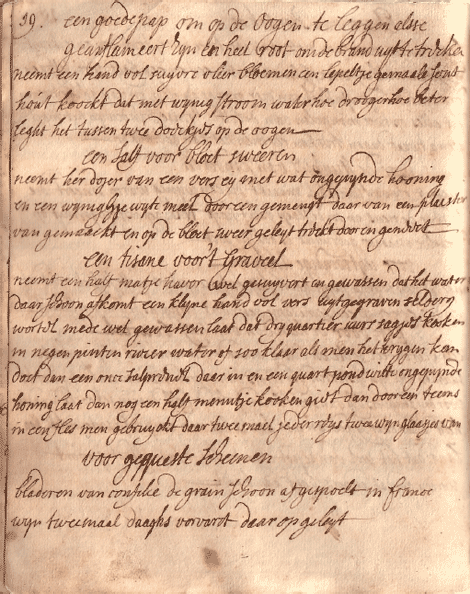 39. een goede pap om op de oogen te leggen alsse
geamflameert zyn en heel root om de brand uyt te trecken
neemt een hand vol suyvere vlier bloemen een lepeltje gemaale
hout koockt dat met wynig stroom water hoe drooger hoe beter
leght het tussen twee doeckjes op de oogen
een salf voor bloet sweeren
neemt her dojer van een vers ey met wat ongepynde hooning
en een wynigtje wyte meel door een gemengt daar van een plaester
van gemaackt en op de bloet sweer geleyt treckt door en geneest
een tisane voor't Graveel
neemt een half matje haver wel gesuyvert en gewassen dat het water
daar schoon af komt een klyne hand vol vers uytgegraven seldery
wortel mede wel gewassen laat dat dry quartier uurs sagjes kooken
in negen pinten rivier water of soo klaar als men het krygen kan
doet dan een once daar in en een quart pond witte ongepynde
honing laat dan nog een half menutje kooken giet dan door een teems
in een fles men gebruyckt daar twee mael jeder rys twee wynglaasjes van
voor gequeste scheenen
bladeren van de grain schoon afgespoelt in france
wyn tweemaal daaghs vervarst daar op geleyt